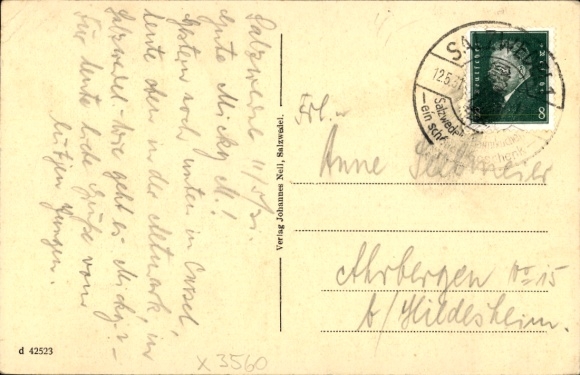 Salzwedel 11/5/31.
Gute Micky M.!
Gestern noch unten in Cassel,
heute oben in der Altmark, in
Salzwedel. Wie geht es Micky? –
Für heute liebe Grüße vom
Jungen.
Verlag Johannes Neil, Salzwedel.
d 42523
x 3560
SALZWEDEL 1
12.5.31
Salzwedel
– ein schö
Deutsches Reich
8 8
Frl.
Anne
Ahrbergen No 15
b/Hildesheim.